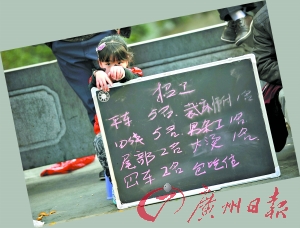 招工
平车 5名 裁床师付1名
四线 5名 杂工1名
尾部2名 大烫 1名
四车2名 包吃住
廣州日报